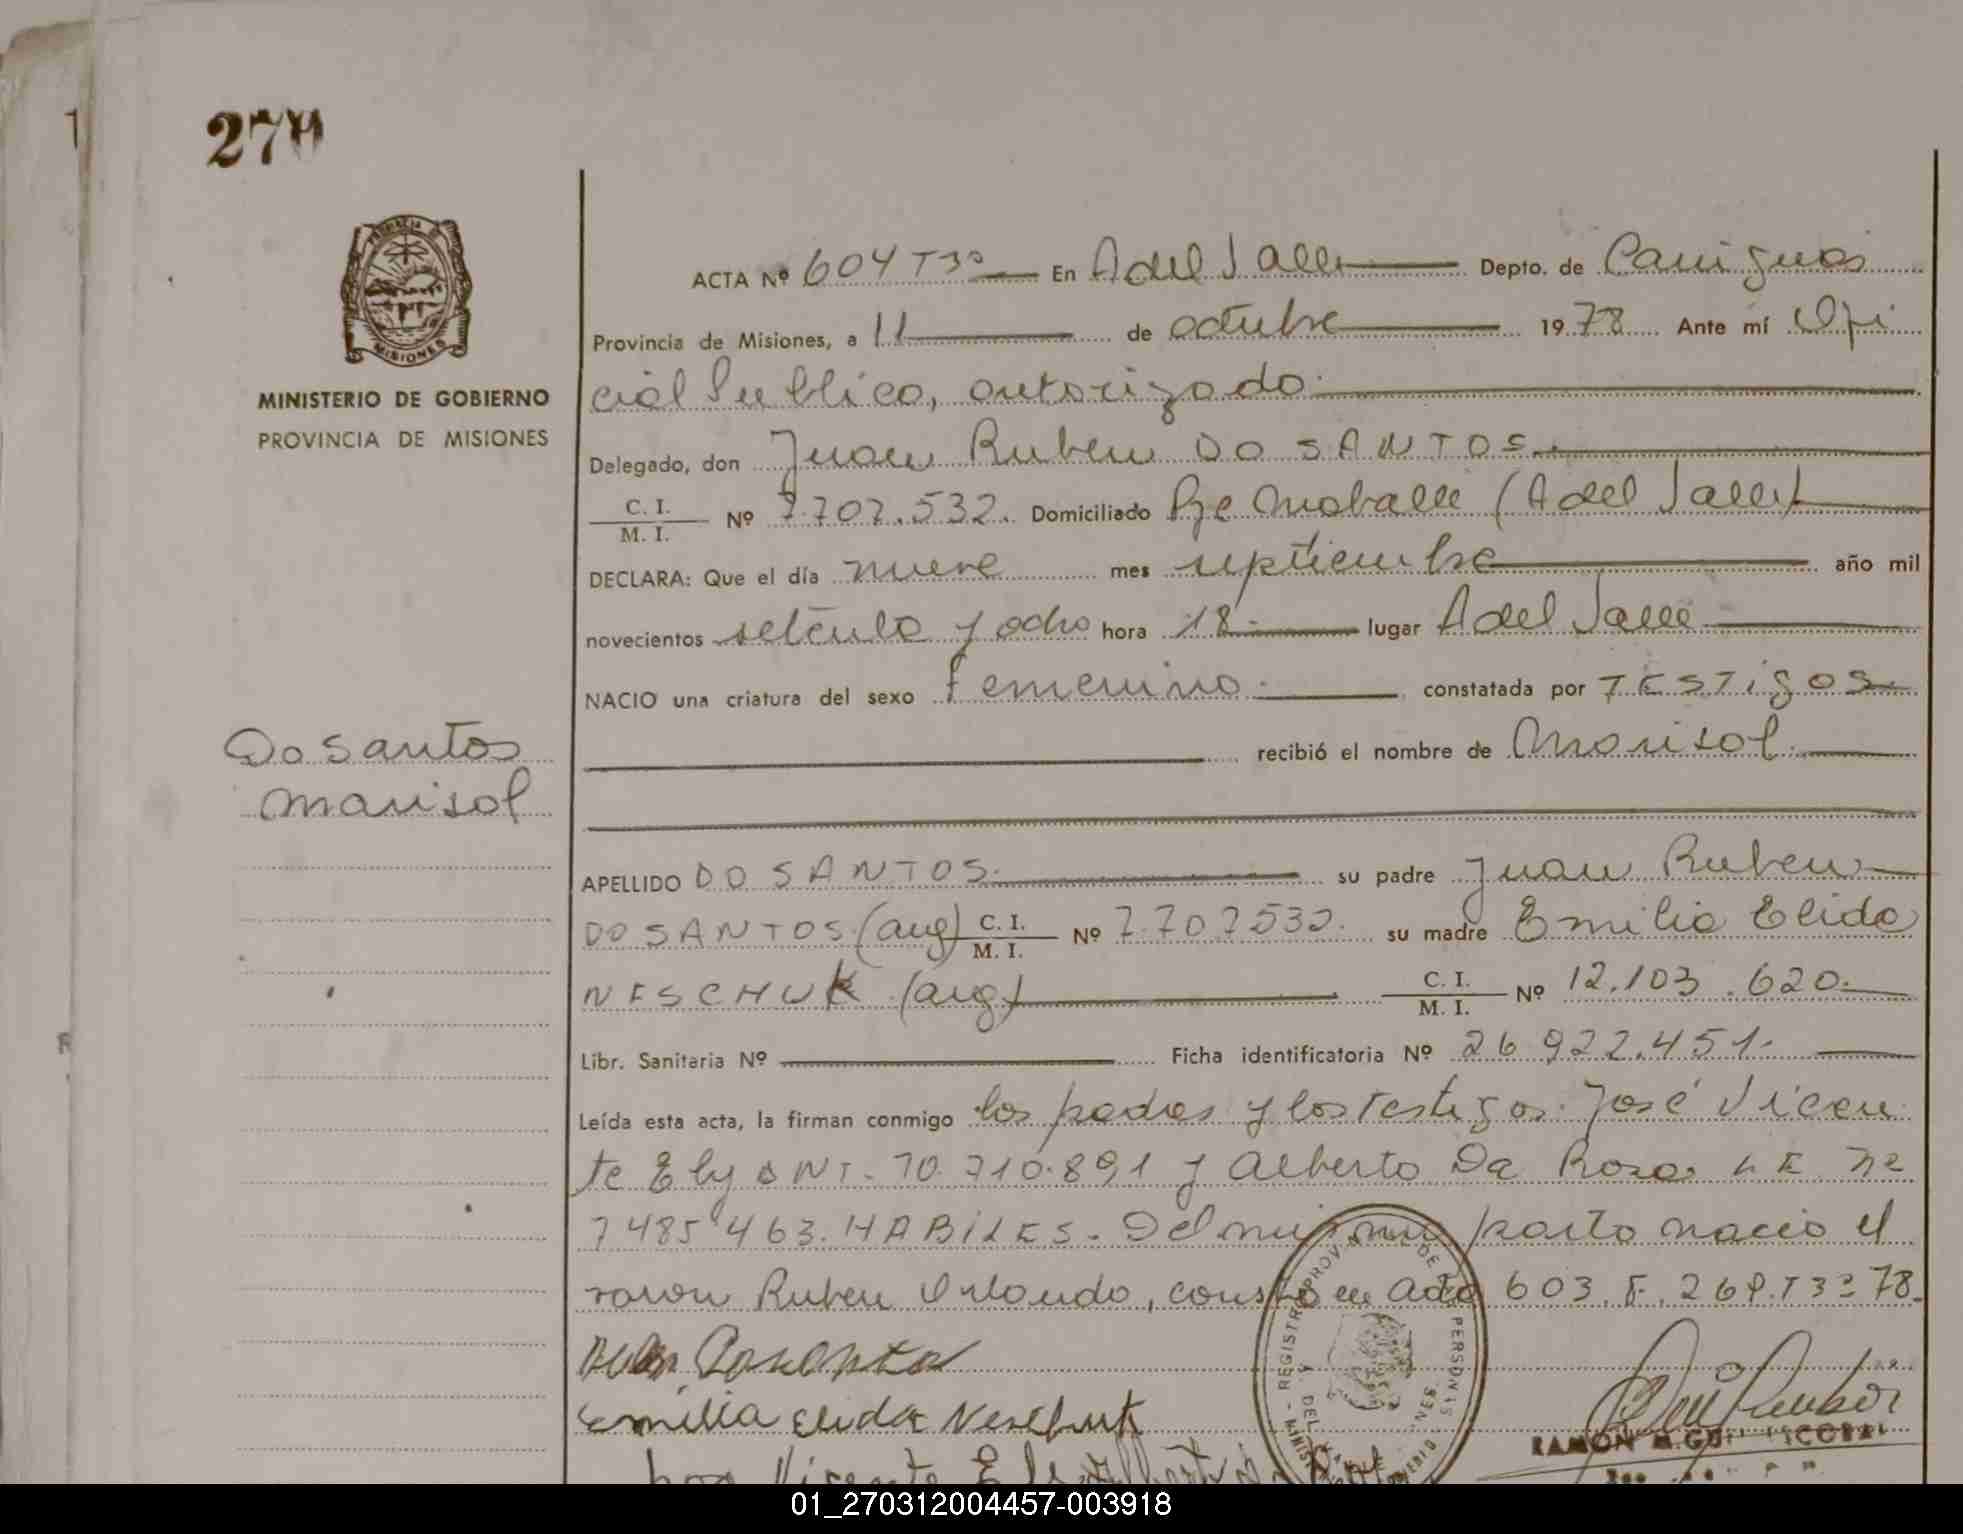 270
PROVINCIA DE
MISIONES
MINISTERIO DE GOBIERNO
PROVINCIA DE MISIONES
Do Santos
Marisol
ACTA Nº 604 Tº3º En A del Valle Depto. de Cainguas
Provincia de Misiones, a 11 de octubre 1978 Ante mí Ofi
cial Publico, autorizado.
Delegado, don Juan Ruben DO SANTOS.
C. I.
M. I. Nº 7.707.532. Domiciliado (A del Valle)
DECLARA: Que el día nueve mes septiembre año mil
novecientos setenta y ocho hora 18. lugar A del Valle
NACIO una criatura del sexo femenino. constatada por TESTigos
recibió el nombre de Marisol.
APELLIDO DO SANTOS. su padre Juan Ruben
DO SANTOS (arg) C. I.
M. I. Nº 7.707532. su madre Emilia Elida
NESCHUK (arg) C. I.
M. I. Nº 12.103.620.
Libr. Sanitaria Nº Ficha identificatoria Nº 26 922.451.
Leída esta acta, la firman conmigo los padres y los testigos. José Vicen
te Ely DNI. 10.710.891 y Alberto Da Rosa LE nº
7485463. HABILES. Del mismo parto nacio el
varon Ruben Orlando, consta en acta 603. F. 269. T 3º 78.
Emilia Elida Neschuk
Jose Vicente Ely
REGISTRO PROVINCIAL DE PERSONAS
RAMON M. ESCOBAR
01_270312004457-003918